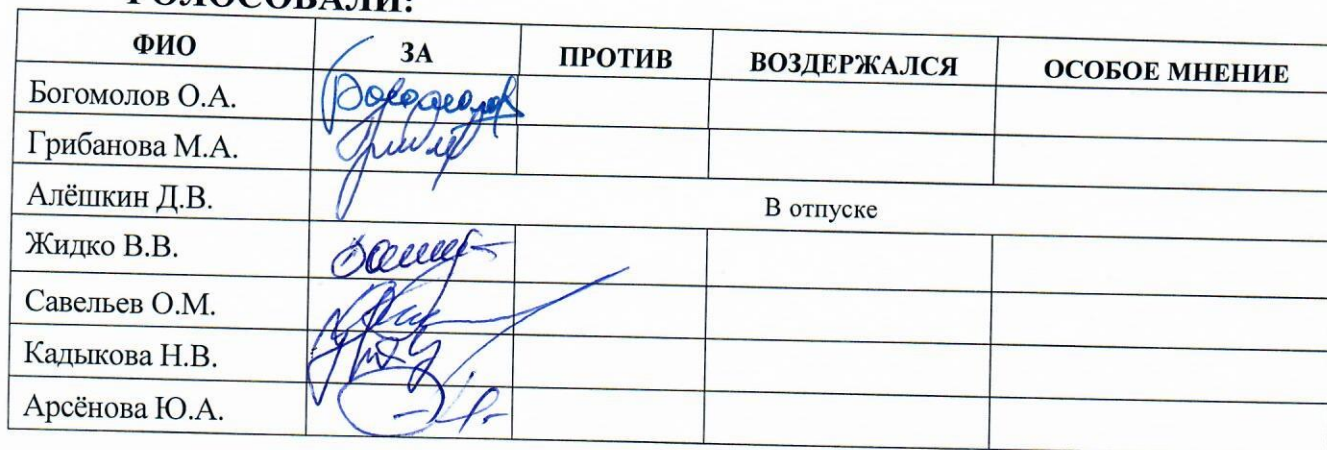 ГОЛОСОВАЛИ:
ФИО ЗА ПРОТИВ ВОЗДЕРЖАЛСЯ ОСОБОЕ МНЕНИЕ
Богомолов О.А.
Грибанова М.А.
Алёшкин Д.В. В отпуске
Жидко В.В.
Савельев О.М.
Кадыкова Н.В.
Арсёнова Ю.А.